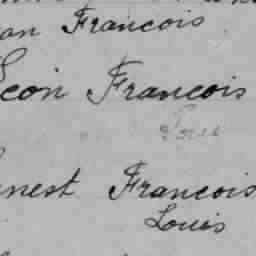 an Francois
Leon Francois
nest Francois
Louis